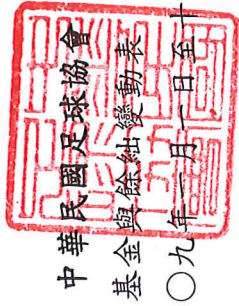 中華民國足球協會
基金與餘絀變動表
〇九年一月一日至十